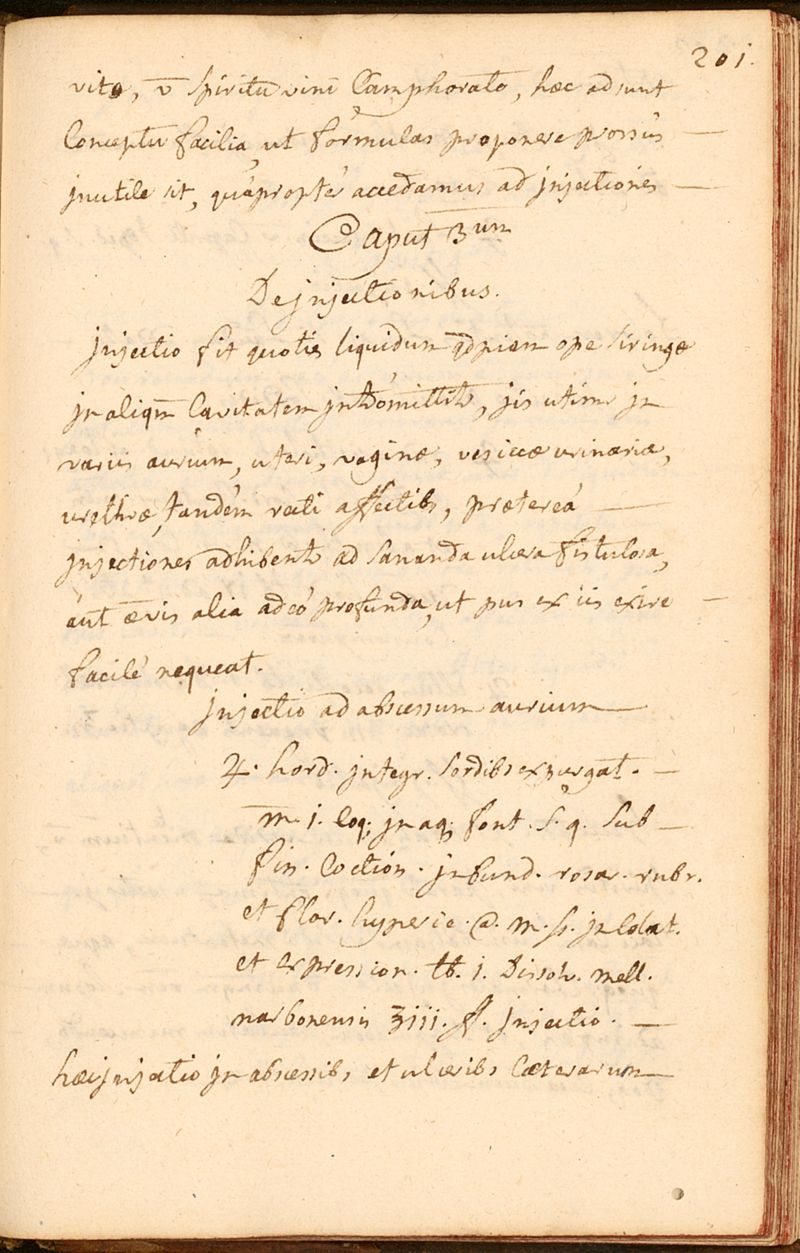 201.
vitæ, v̄ spiritu vini Camphorato, hæc adsunt
Conceptu facilia, ut formulas proponere prorsùs —
jnutile sit, quapropter accedamus ad jnjectiones —
Caput 3um
De jnjectionibus.
jnjectio fit quoties liquidum qdpiam ope siringæ
jn aliqm̄ Cavitatem jntromittitr, jis utimr jn
variis aurium, uteri, vaginæ, vesiccæ urinariæ,
urethræ, tandem recti affectibs, prætereá —
jnjectiones adhibentr ad sananda ulcera fistulosa,
áut ævis alia adeó profunda, ut pus ex iis exire —
facilé nequeat.
jnjectio ad abscessum aurium —
♃. hord. jntegr. sordibs expurgat. —
m. j. coq; jn aq; font. s. q. sub —
fin. Coction. jnfund. rosar. rubr.
et flor. hyperic. @. m. ſs. jn Colat.
et expression. ℔. j. Dissolv. mell.
narbonensis ℥iii. f. jnjectio. —
hæc jnjectio jn abscessibs et ulceribs Cæterarum —